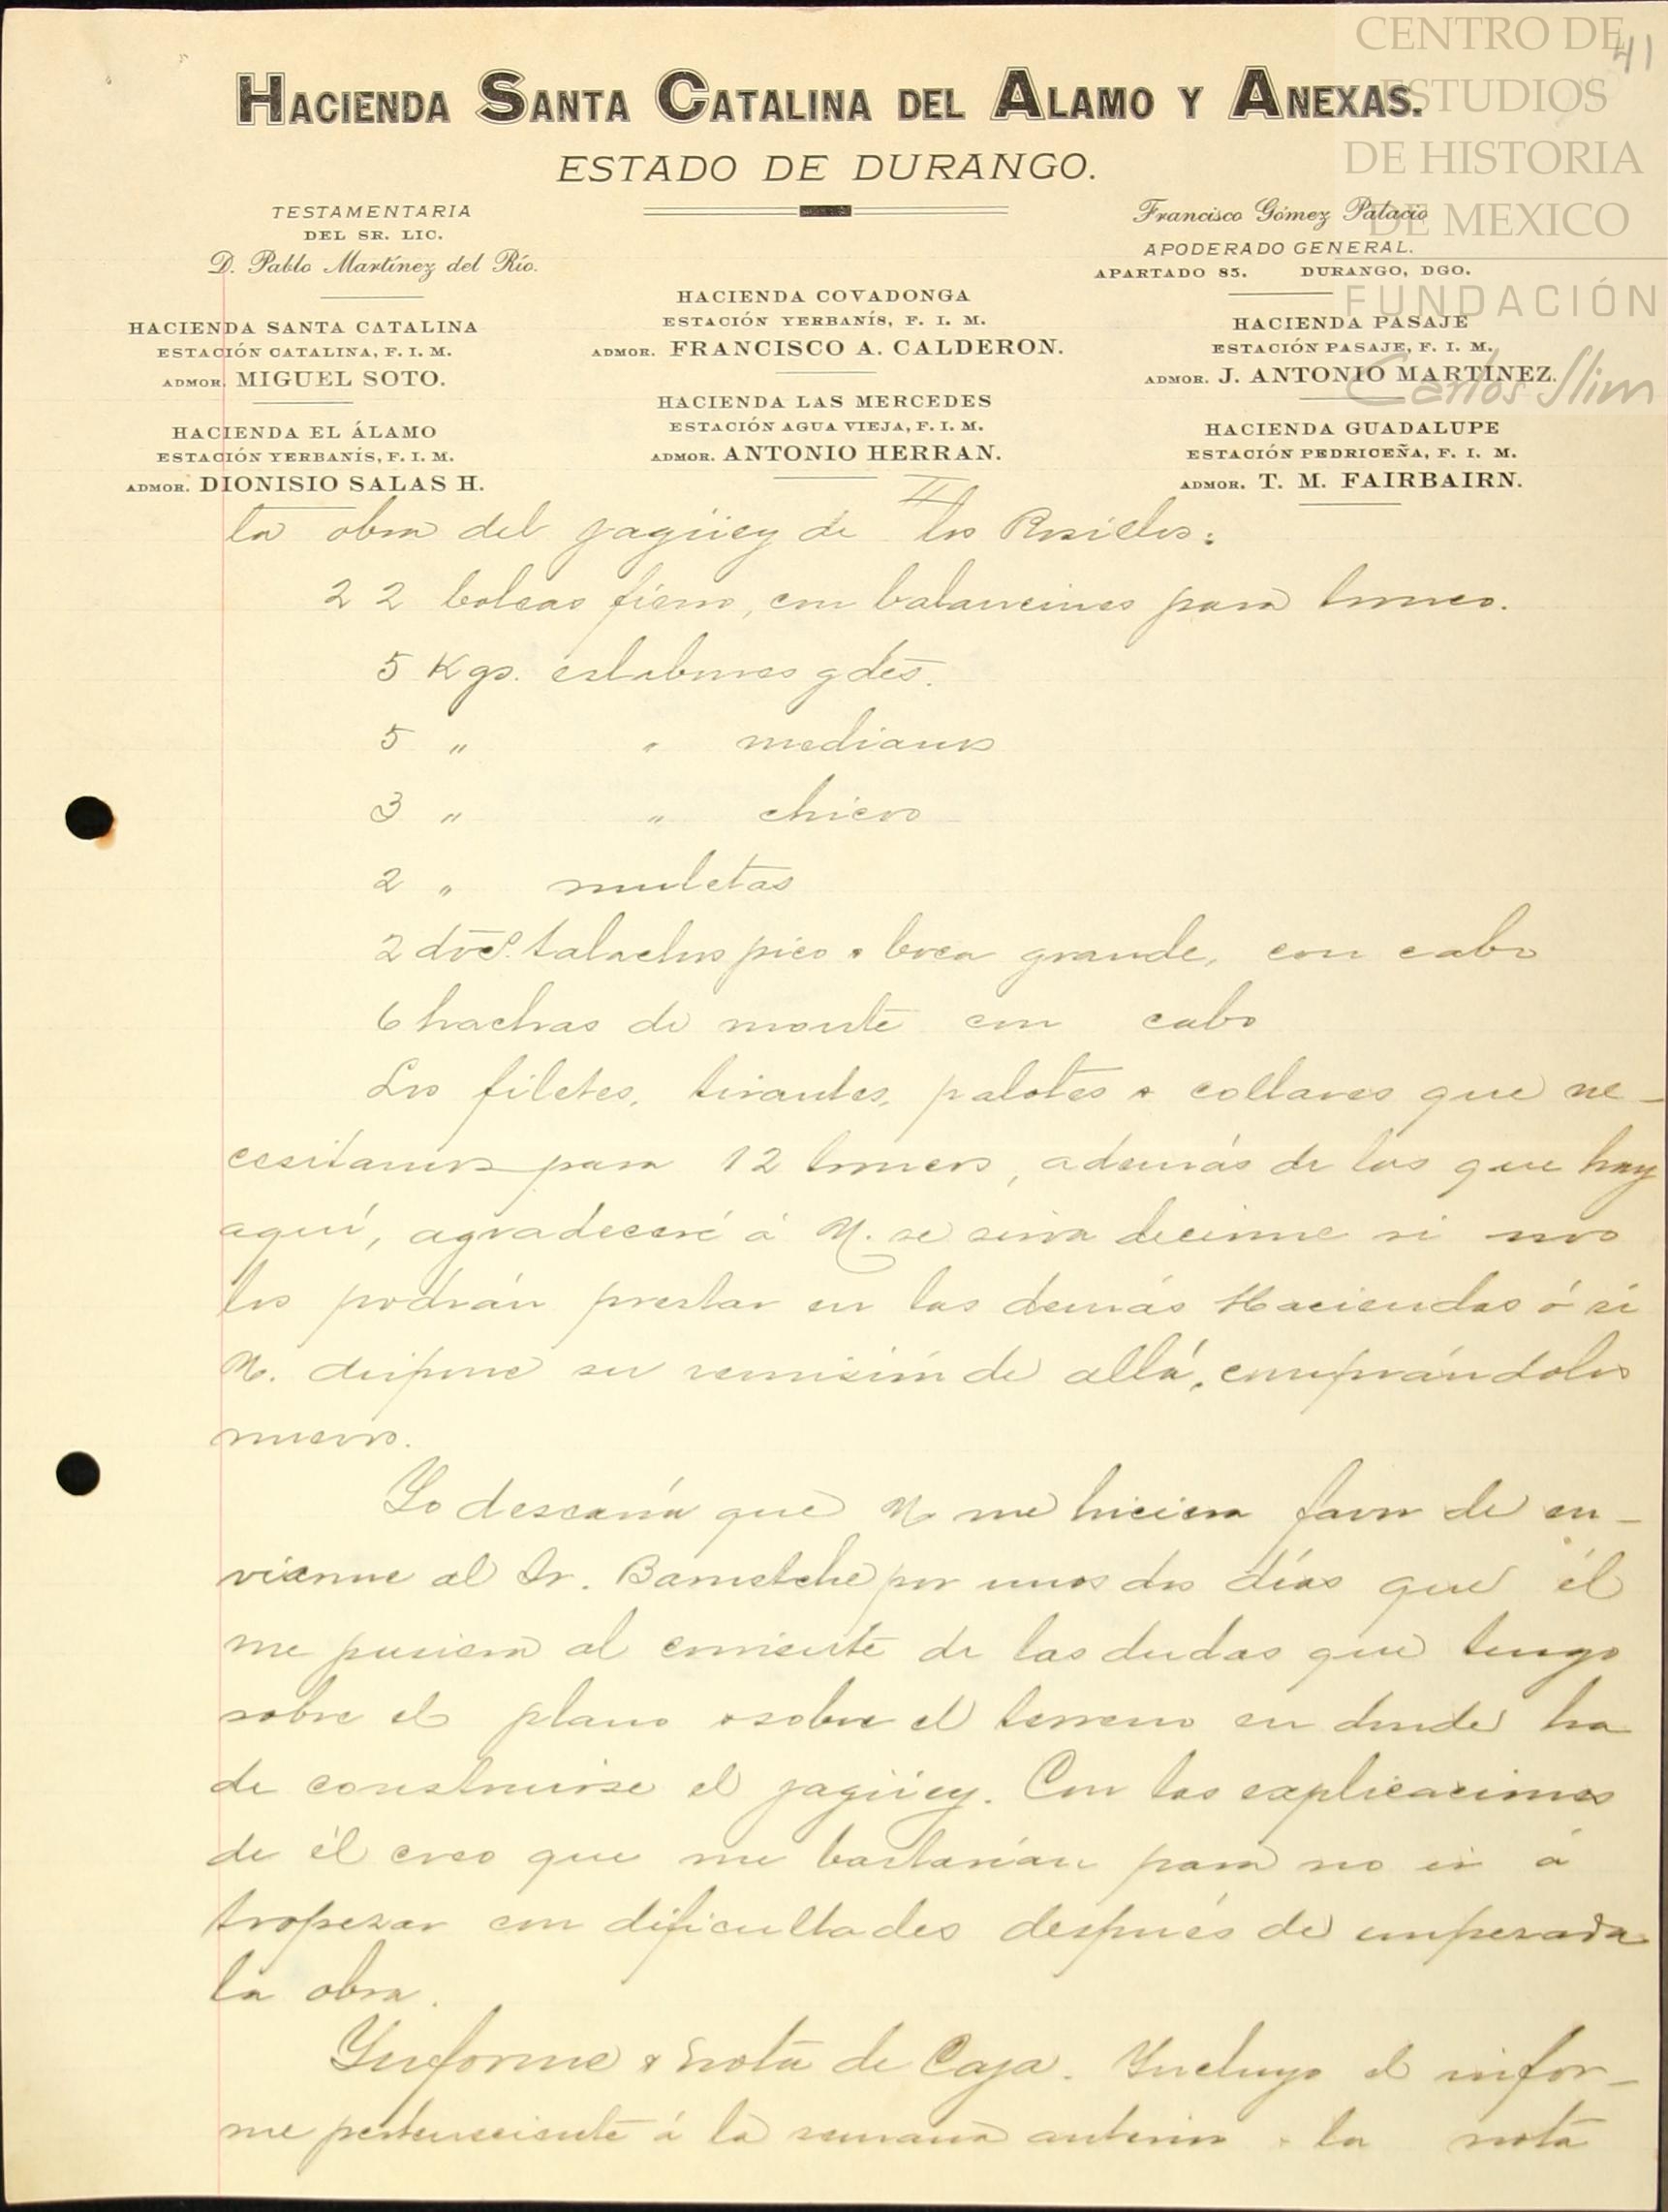 CENTRO DE
ESTUDIOS
DE HISTORIA
DE MEXICO
FUNDACIÓN
Carlos Slim
41
HACIENDA SANTA CATALINA DEL ALAMO Y ANEXAS.
ESTADO DE DURANGO.
TESTAMENTARIA
DEL SR. LIC.
D. Pablo Martínez del Río.
HACIENDA SANTA CATALINA
ESTACIÓN CATALINA, F. I. M.
ADMOR. MIGUEL SOTO.
HACIENDA EL ÁLAMO
ESTACIÓN YERBANÍS, F. I. M.
ADMOR. DIONISIO SALAS H.
HACIENDA COVADONGA
ESTACIÓN YERBANÍS, F. I. M.
ADMOR. FRANCISCO A. CALDERON.
HACIENDA LAS MERCEDES
ESTACIÓN AGUA VIEJA, F. I. M.
ADMOR. ANTONIO HERRAN.
Francisco Gómez Palacio
APODERADO GENERAL.
APARTADO 85. DURANGO, DGO.
HACIENDA PASAJE
ESTACIÓN PASAJE, F. I. M.
ADMOR. J. ANTONIO MARTÍNEZ.
HACIENDA GUADALUPE
ESTACIÓN PEDRICEÑA, F. I. M.
ADMOR. T. M. FAIRBAIRN.
II
la obra del jagüey de los
22 boleas fierro, con balancines para troncos.
5 Kgs. eslabones gdes.
5 " " medianos
3 " " chicos
2 " muletas
2 doc. talachos pico y boca grande, con cabo
6 hachas de monte con cabo
Los filetes, tirantes, palotes y collares que ne-
cesitamos para 12 troncos, además de los que hay
aquí, agradeceré á U. se sirva decirme si nos
los podrán prestar en las demás Haciendas ó si
U. dispone su remisión de allá, comprándolos
nuevos.
Yo desearía que U. me hiciera favor de en-
viarme al Sr. por unos dos días que él
me pusiera al corriente de las dudas que tengo
sobre el plano y sobre el terreno en donde ha
de construirse el jagüey. Con las explicaciones
de él creo que me bastarían para no ir á
tropezar con dificultades después de empezada
la obra.
Informe y nota de Caja. Incluyo el infor-
me perteneciente á la semana anterior y la nota